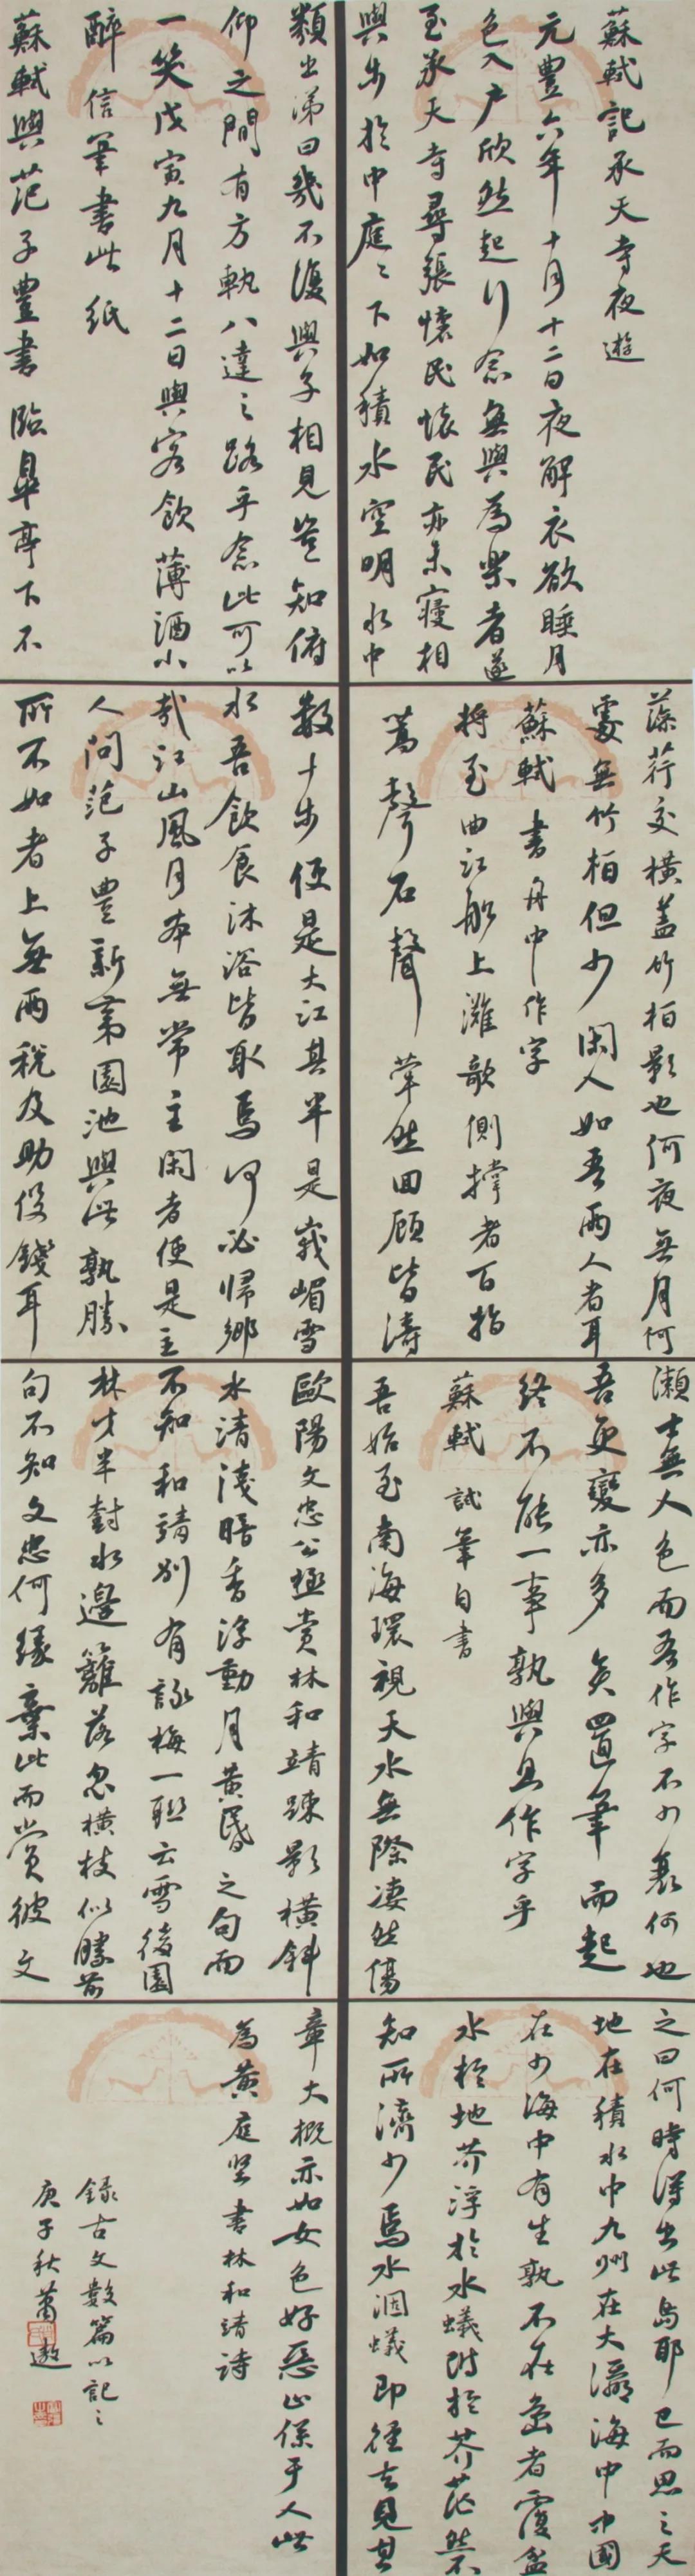 蘇軾記承天寺夜遊
元豐六年十月十二日夜解衣欲睡月
色入户欣然起行念無與為樂者遂
至承天寺尋張懷民懷民亦未寢相
與步於中庭〻下如積水空明水中
藻荇交橫蓋竹栢影也何夜無月何
處無竹栢但少閑人如吾兩人者耳
蘇軾書舟中作字
將至曲江船上灘欹側撐者百指
篙聲石聲犖然回顧皆濤
瀨士無人色而吾作字不少衰何也
吾更變亦多矣置筆而起
終不能一事孰與且作字乎
蘇軾試筆自書
吾始至南海環視天水無際凄然傷
之曰何時得出此島耶已而思之天
地在積水中九州在大瀛海中中國
在少海中有生孰不在島者覆盆
水於地芥浮於水蟻附於芥茫然不
知所濟少焉水涸蟻即徑去見其
類出涕曰幾不復與子相見豈知俯
仰之間有方軌八達〻路乎念此可以
一笑戊寅九月十二日與客飲薄酒小
醉信筆書此紙
蘇軾與范子豐書臨皐亭下不
數十步便是大江其半是峩嵋雪
水吾飲食沐浴皆取焉何必歸鄉
哉江山風月本無常主閑者便是主
人問范子豐新第園池與此孰勝
所不如者上無兩稅及助役錢耳
歐陽文忠公極賞林和靖踈影橫斜
水清淺暗香浮動月黃昏之句而
不知和靖別有詠梅一聯云雪後園
林才半樹水邊籬落忽橫枝似勝前
句不知文忠何緣棄此而賞彼文
章大概亦如女色好惡止係于人此
為黃庭堅書林和靖詩
錄古文數篇以記〻
庚子秋蕭遨